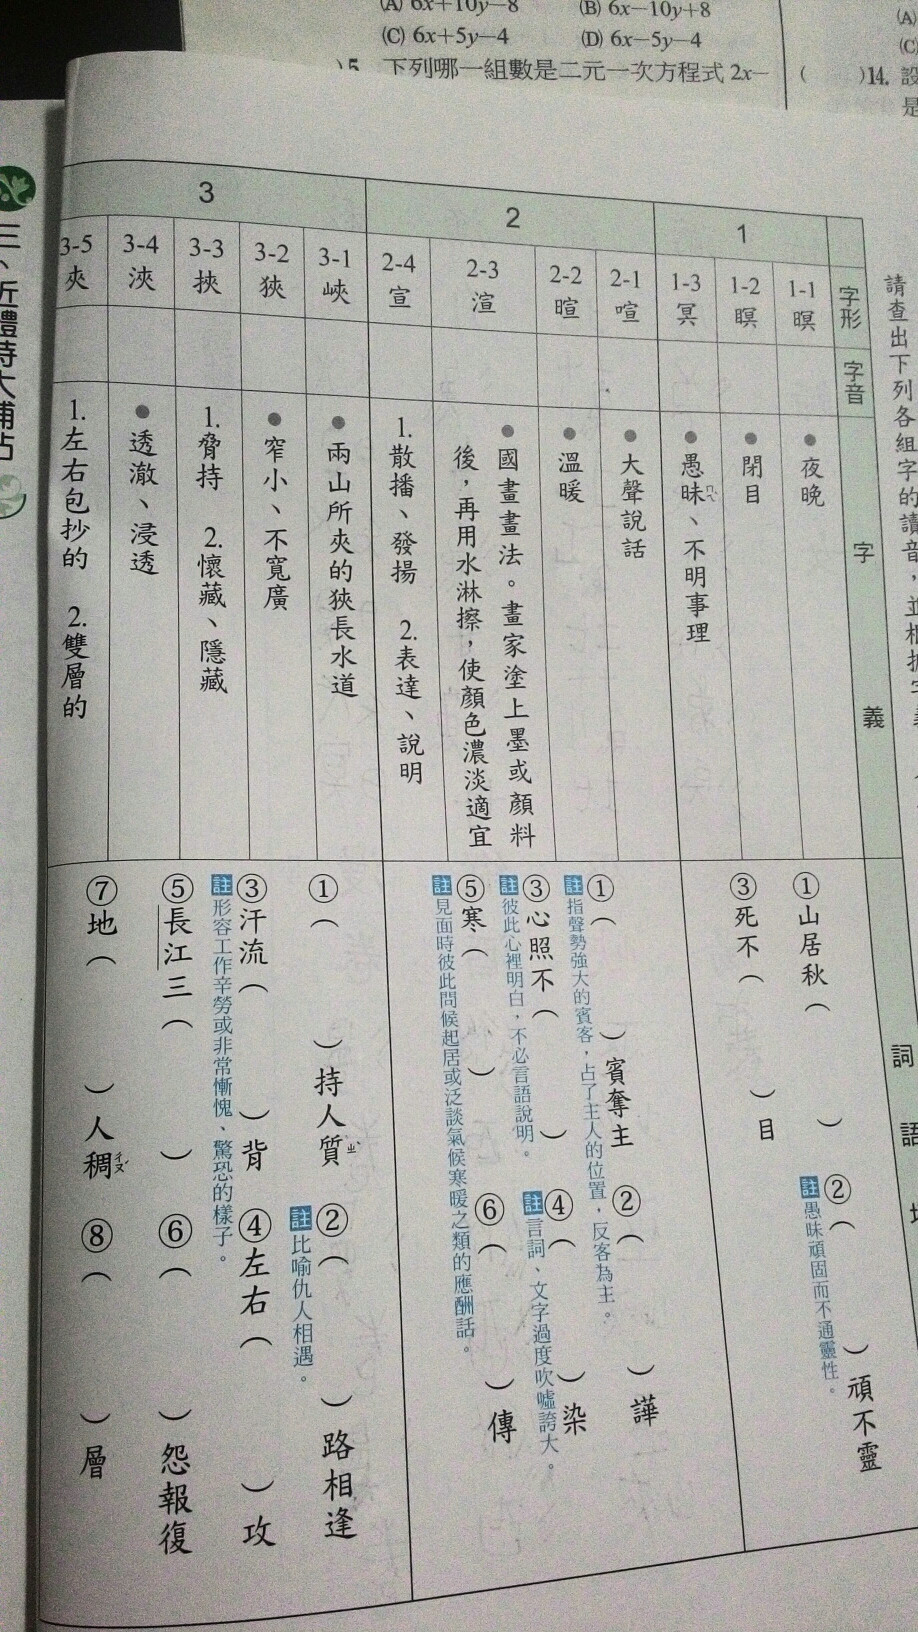 (A) 6x+10y−8 (B) 6x−10y+8
(C) 6x+5y−4 (D) 6x−5y−4
)5. 下列哪一組數是二元一次方程式 2x−
(A)
(C)
( )14. 設
是
請查出下列各組字的讀音，並根據字義
字形
字音
字義
詞語
1
1-1 暝
夜晚
1-2 瞑
閉目
1-3 冥
愚昧ㄇㄟˋ、不明事理
①山居秋（ ）
②（ ）頑不靈
註愚昧頑固而不通靈性。
③死不（ ）目
2
2-1 喧
大聲說話
2-2 暄
溫暖
2-3 渲
國畫畫法。畫家塗上墨或顏料
後，再用水淋擦，使顏色濃淡適宜
2-4 宣
1.散播、發揚 2.表達、說明
①（ ）賓奪主
註指聲勢強大的賓客，占了主人的位置，反客為主。
②（ ）譁
③心照不（ ）
註彼此心裡明白，不必言語說明。
④（ ）染
註言詞、文字過度吹噓誇大。
⑤寒（ ）
註見面時彼此問候起居或泛談氣候寒暖之類的應酬話。
⑥（ ）傳
3
3-1 峽
兩山所夾的狹長水道
3-2 狹
窄小、不寬廣
3-3 挾
1.脅持 2.懷藏、隱藏
3-4 浹
透澈、浸透
3-5 夾
1.左右包抄的 2.雙層的
①（ ）持人質ㄓˋ
②（ ）路相逢
註比喻仇人相遇。
③汗流（ ）背
註形容工作辛勞或非常慚愧、驚恐的樣子。
④左右（ ）攻
⑤長江三（ ）
⑥（ ）怨報復
⑦地（ ）人稠ㄔㄡˊ
⑧（ ）層
三、近體詩大補帖